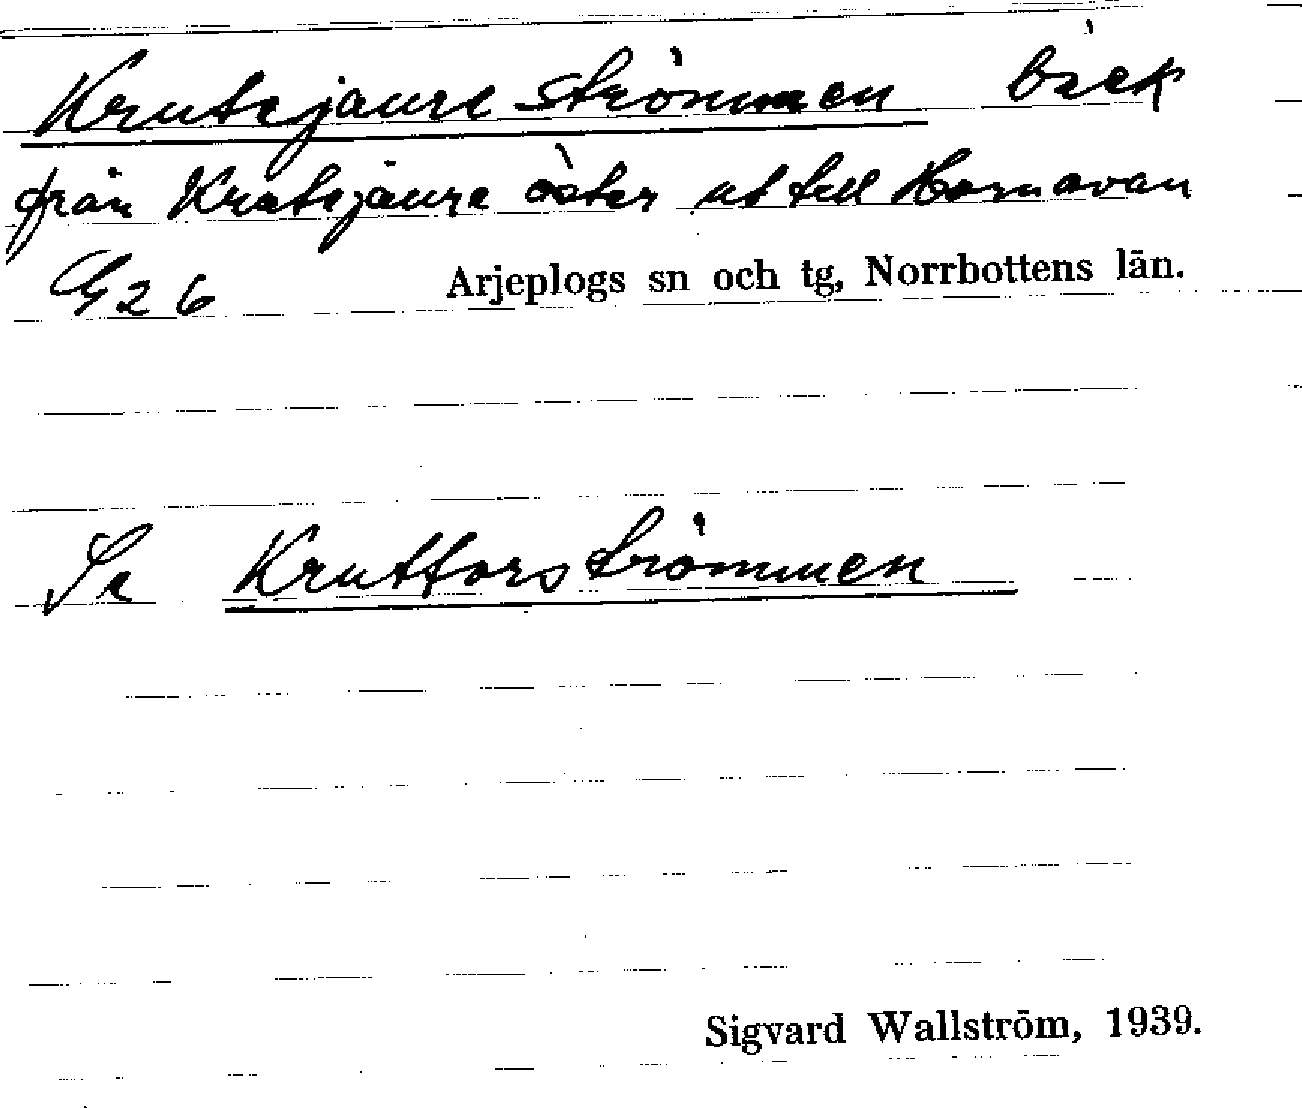 Krutsjaureströmmen bäck
från Krutsjaure öster ut till Hornavan
G 26 Arjeplogs sn och tg, Norrbottens län.
Se Kruttforsströmmen
Sigvard Wallström, 1939.